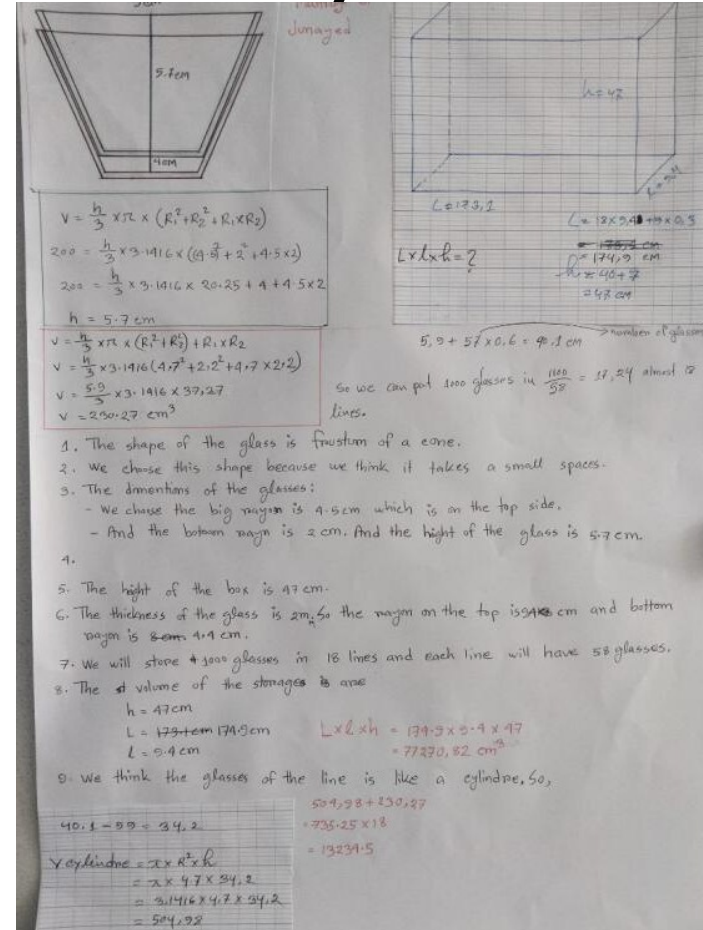 Junayed
5.7cm
4cm
h = 47
L = 173,1
V = h/3 × π × (R₁² + R₂² + R₁ × R₂)
200 = h/3 × 3.1416 × ((4.5)² + 2² + 4.5 × 2)
200 = h/3 × 3.1416 × 20.25 + 4 + 4.5 × 2
h = 5.7 cm
L × l × h = ?
= 174,9 cm
= 40 + 7
= 47 cm
V = h/3 × π × (R₁² + R₂²) + R₁ × R₂
V = h/3 × 3.1416 (4,7² + 2,2² + 4,7 × 2,2)
V = 5.9/3 × 3.1416 × 37,27
V = 230.27 cm³
5,9 + 57 × 0,6 = 40,1 cm
number of glasses
So we can put 1000 glasses in 1000/58 = 17,24 almost 18
lines.
1. The shape of the glass is frustum of a cone.
2. We choose this shape because we think it takes a small spaces.
3. The dmentions of the glasses:
- We choose the big rayon is 4.5cm which is on the top side.
- And the bottom rayn is 2 cm. And the hight of the glass is 5.7 cm.
4.
5. The hight of the box is 47 cm.
6. The thickness of the glass is 2m, So the rayon on the top is cm and bottom
rayon is 4.4 cm.
7. We will store 1000 glasses in 18 lines and each line will have 58 glasses.
8. The volume of the storages are
h = 47cm
L = 174.9cm
l = 9.4 cm
L × l × h = 174.9 × 9.4 × 47
= 77270,82 cm³
9. We think the glasses of the line is like a cylindre, So,
40.1 - 59 = 34,2
V cylindre = π × R² × h
= π × 4.7 × 34,2
= 3.1416 × 4,7 × 34,2
= 504,98
504,98 + 230,27
= 735.25 × 18
= 13234.5